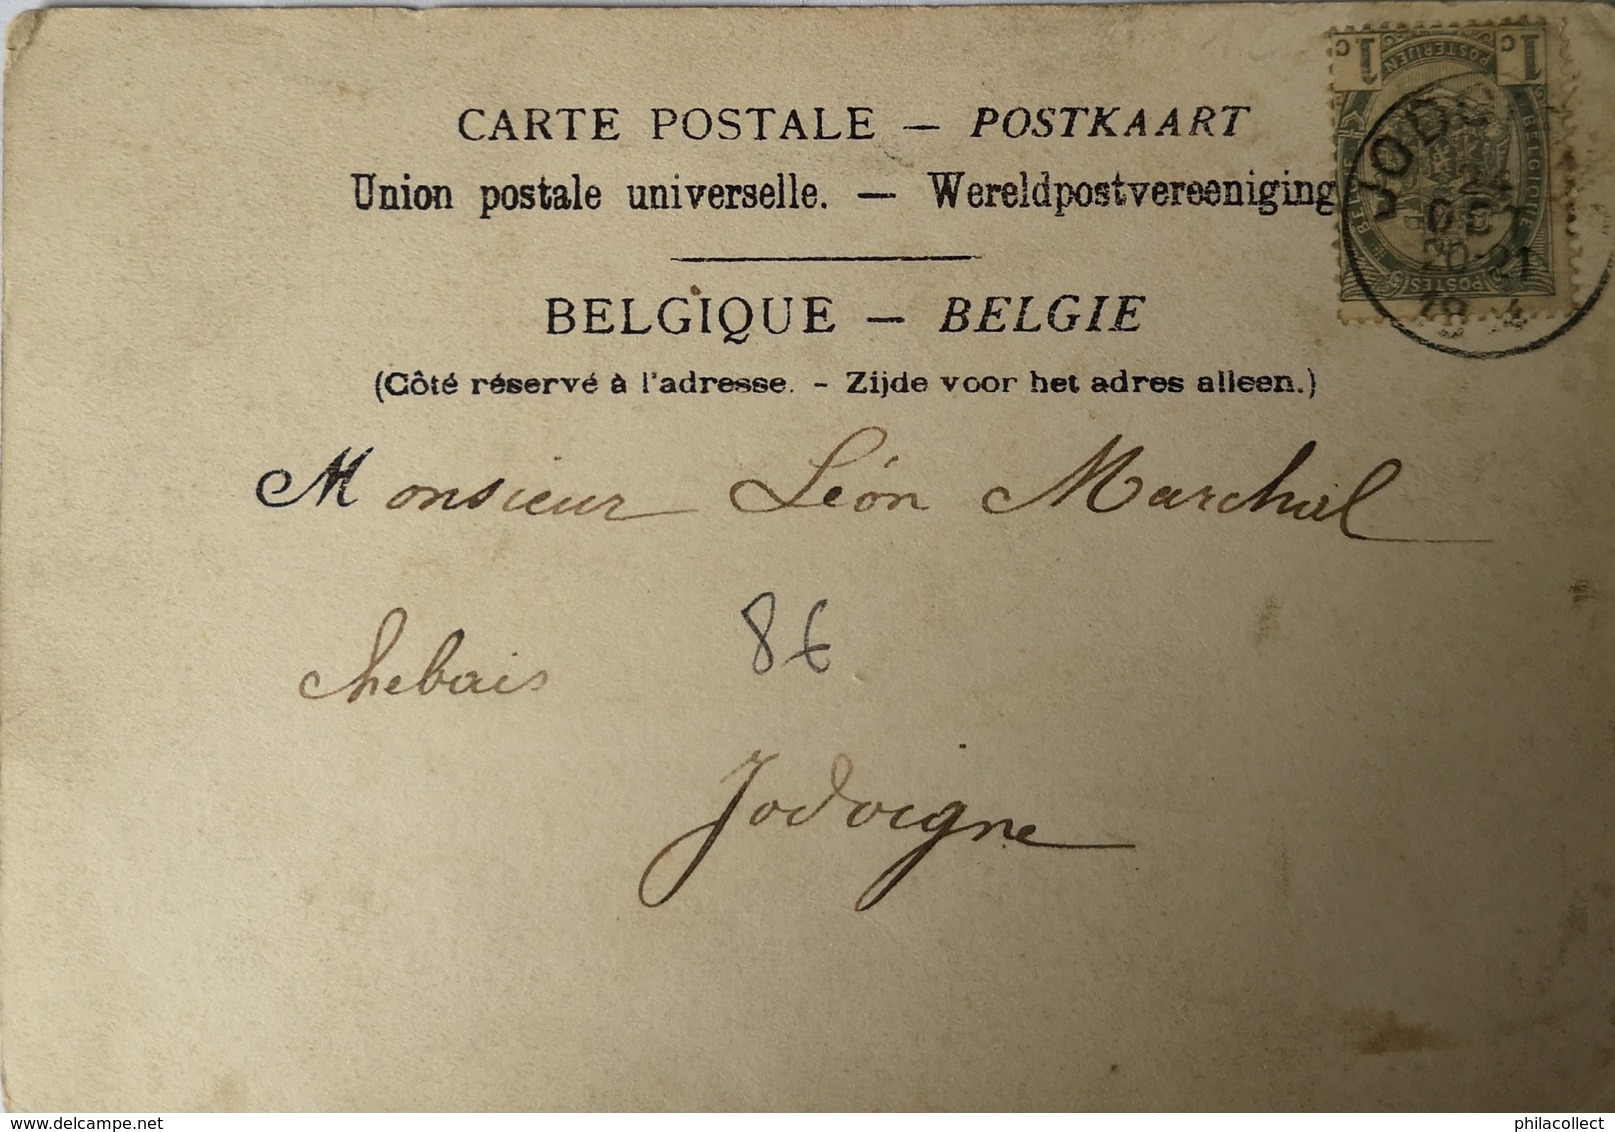 CARTE POSTALE — POSTKAART
Union postale universelle. — Wereldpostvereeniging
BELGIQUE — BELGIE
(Côté réservé à l'adresse. - Zijde voor het adres alleen.)
1c POSTERIJEN 1c
BELGIQUE
POSTES
JODO
24
OCT
20-21
Monsieur Léon Marchal
chebais
8€
Jodoigne
delcampe.net
philacollect